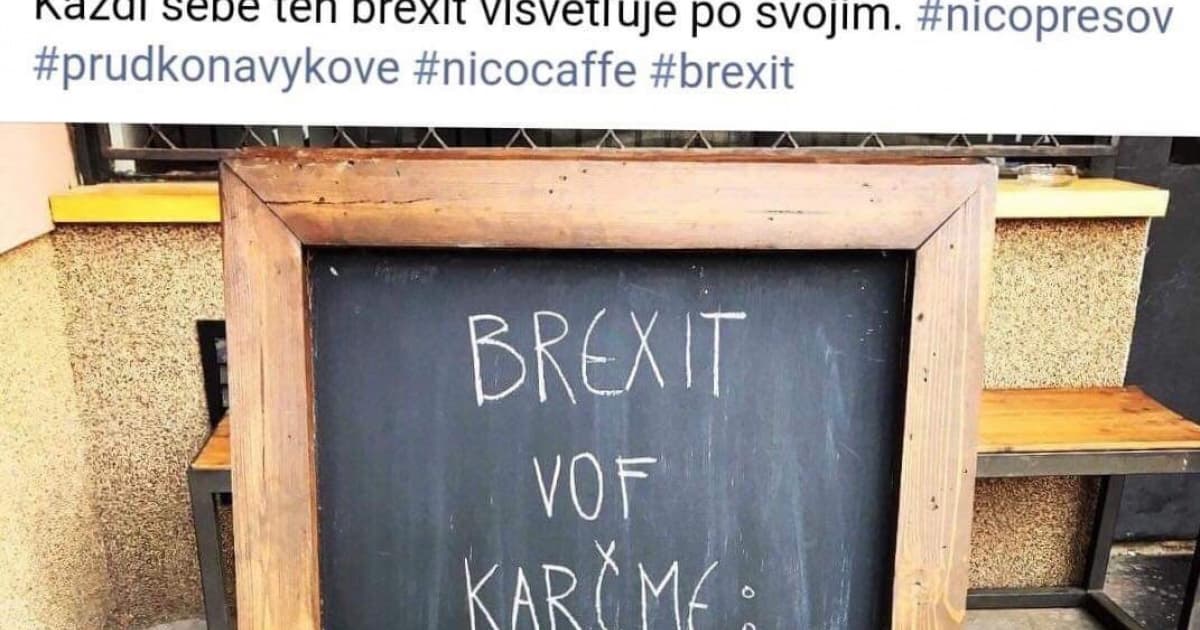 Každi sebe ten brexit visvetľuje po svojim. #nicopresov
#prudkonavykove #nicocaffe #brexit
BREXIT
VOF
KARČME: